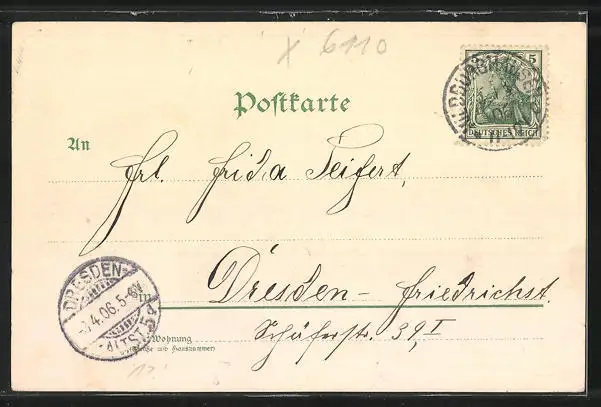 X 6110
5
DEUTSCHES REICH
HILDBURGHAUSEN
Postkarte
An
Frl. Frida Seifert,
in Dresden-Friedrichst.
DRESDEN
4.06.5-6N
ALTST.
Wohnung
(Straße und Hausnummer)
Schäferstr. 39, I